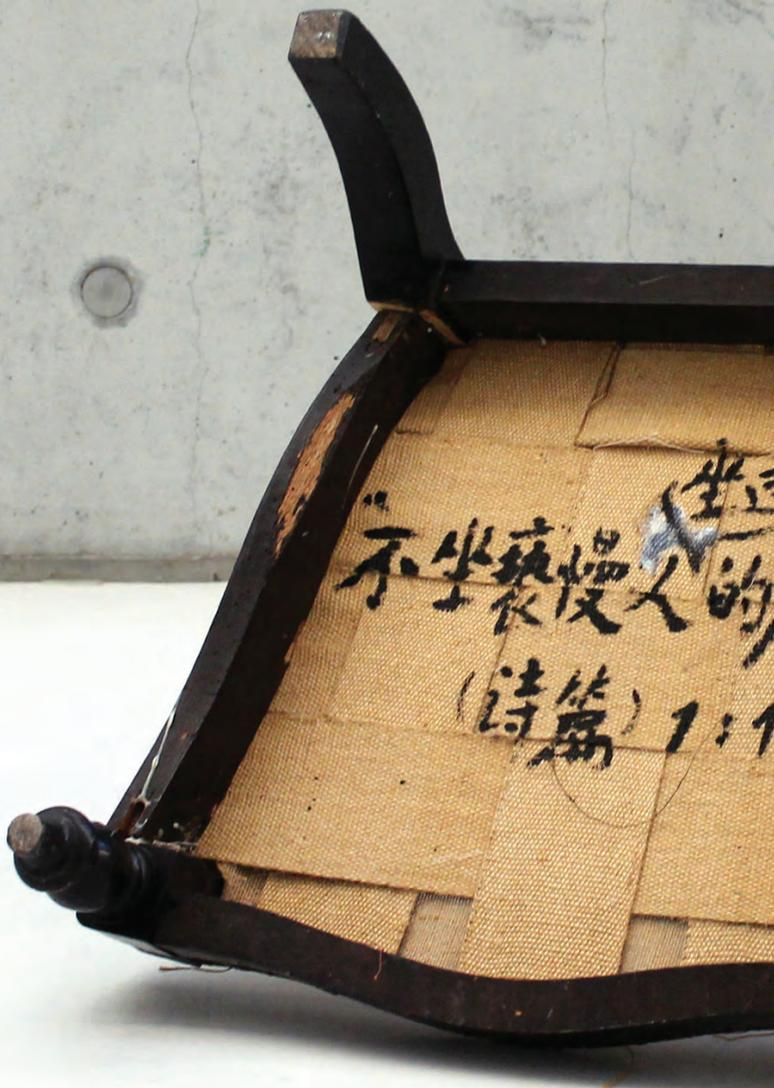 坐
"不坐褻慢人的
(詩篇) 1:1